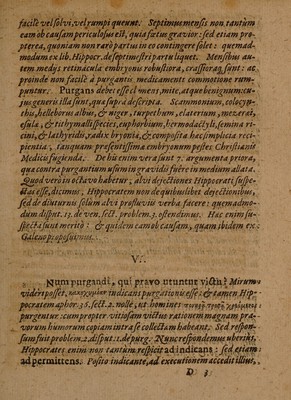 facilè vel solvi, vel rumpi queunt. Septimus mensis non tantùm
eam ob causam periculosus est, quia fœtus gravior: sed etiam pro-
pterea, quoniam non rarò partus in eo contingere solet: quemad-
modum ex lib. Hippocr. de septimestri partu liquet. Mensibus au-
tem mediis retinacula embryonis robustiora, crassioraq́; sunt: ac
proinde non facilè à purgantis medicamenti commotione rum-
puntur. Purgans debet esse clemens, mite, atque benignum: cu-
jus generis illa sunt, quæ suprà descripta. Scammonium, colocyn-
this, helleborus albus, & niger, turpethum, elaterium, mezereū,
esula, & tithymalli species, euphorbium, hermodactyli, semina ri-
cini, & lathyridis, radix bryoniæ, & composita hæc simplicia reci-
pientia, tanquam præsentissima embryonum pestes Christianis
Medicis fugienda. De his enim vera sunt 7. argumenta priora,
quæ contra purgantium usum in gravidis fuêre in medium allata.
Quod verò in octavo habetur, alvi dejectiones Hippocrati suspe-
ctas esse, dicimus, Hippocratem non de quibuslibet dejectionibus,
sed de diuturnis solùm alvi profluviis verba facere: quemadmo-
dum disput. 15. de ven. sect. problem. 3. ostendimus. Hæc enim su-
specta sunt meritò: & quidem eam ob causam, quam ibidem ex
Galeno proposuimus.
VI.
Num purgandi, qui pravo utuntur victu? Mirum
videri posset, indicari purgationis esse: & tamen Hip-
pocratem aphor. 36. sect. 2. nolle, ut homines
purgentur: cum propter vitiosam victus rationem magnam pra-
vorum humorum copiam intra se collectam habeant. Sed respon-
sum fuit problem. 2. disput. 11. de purg. Nunc respondemus uberius,
Hippocrates enim non tantùm respicit ad indicans: sed etiam
ad permittens. Posito indicante, ad executionem accedit illius,
D 3